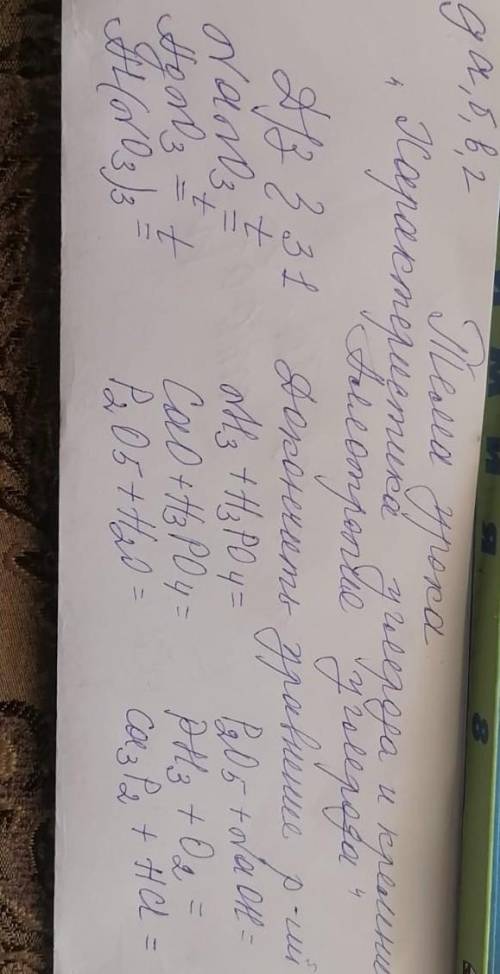 9 а, б, в, г
Тема урока
"Характеристика углерода и кремния
Аллотропие углерода"
Д/З § 31 Докончить уравнение р-ий
NaNO3 =t NH3 + H3PO4 = P2O5 + NaOH =
AgNO3 =t CaO + H3PO4 = PH3 + O2 =
Al(NO3)3 =t P2O5 + H2O = Ca3P2 + HCl =
8